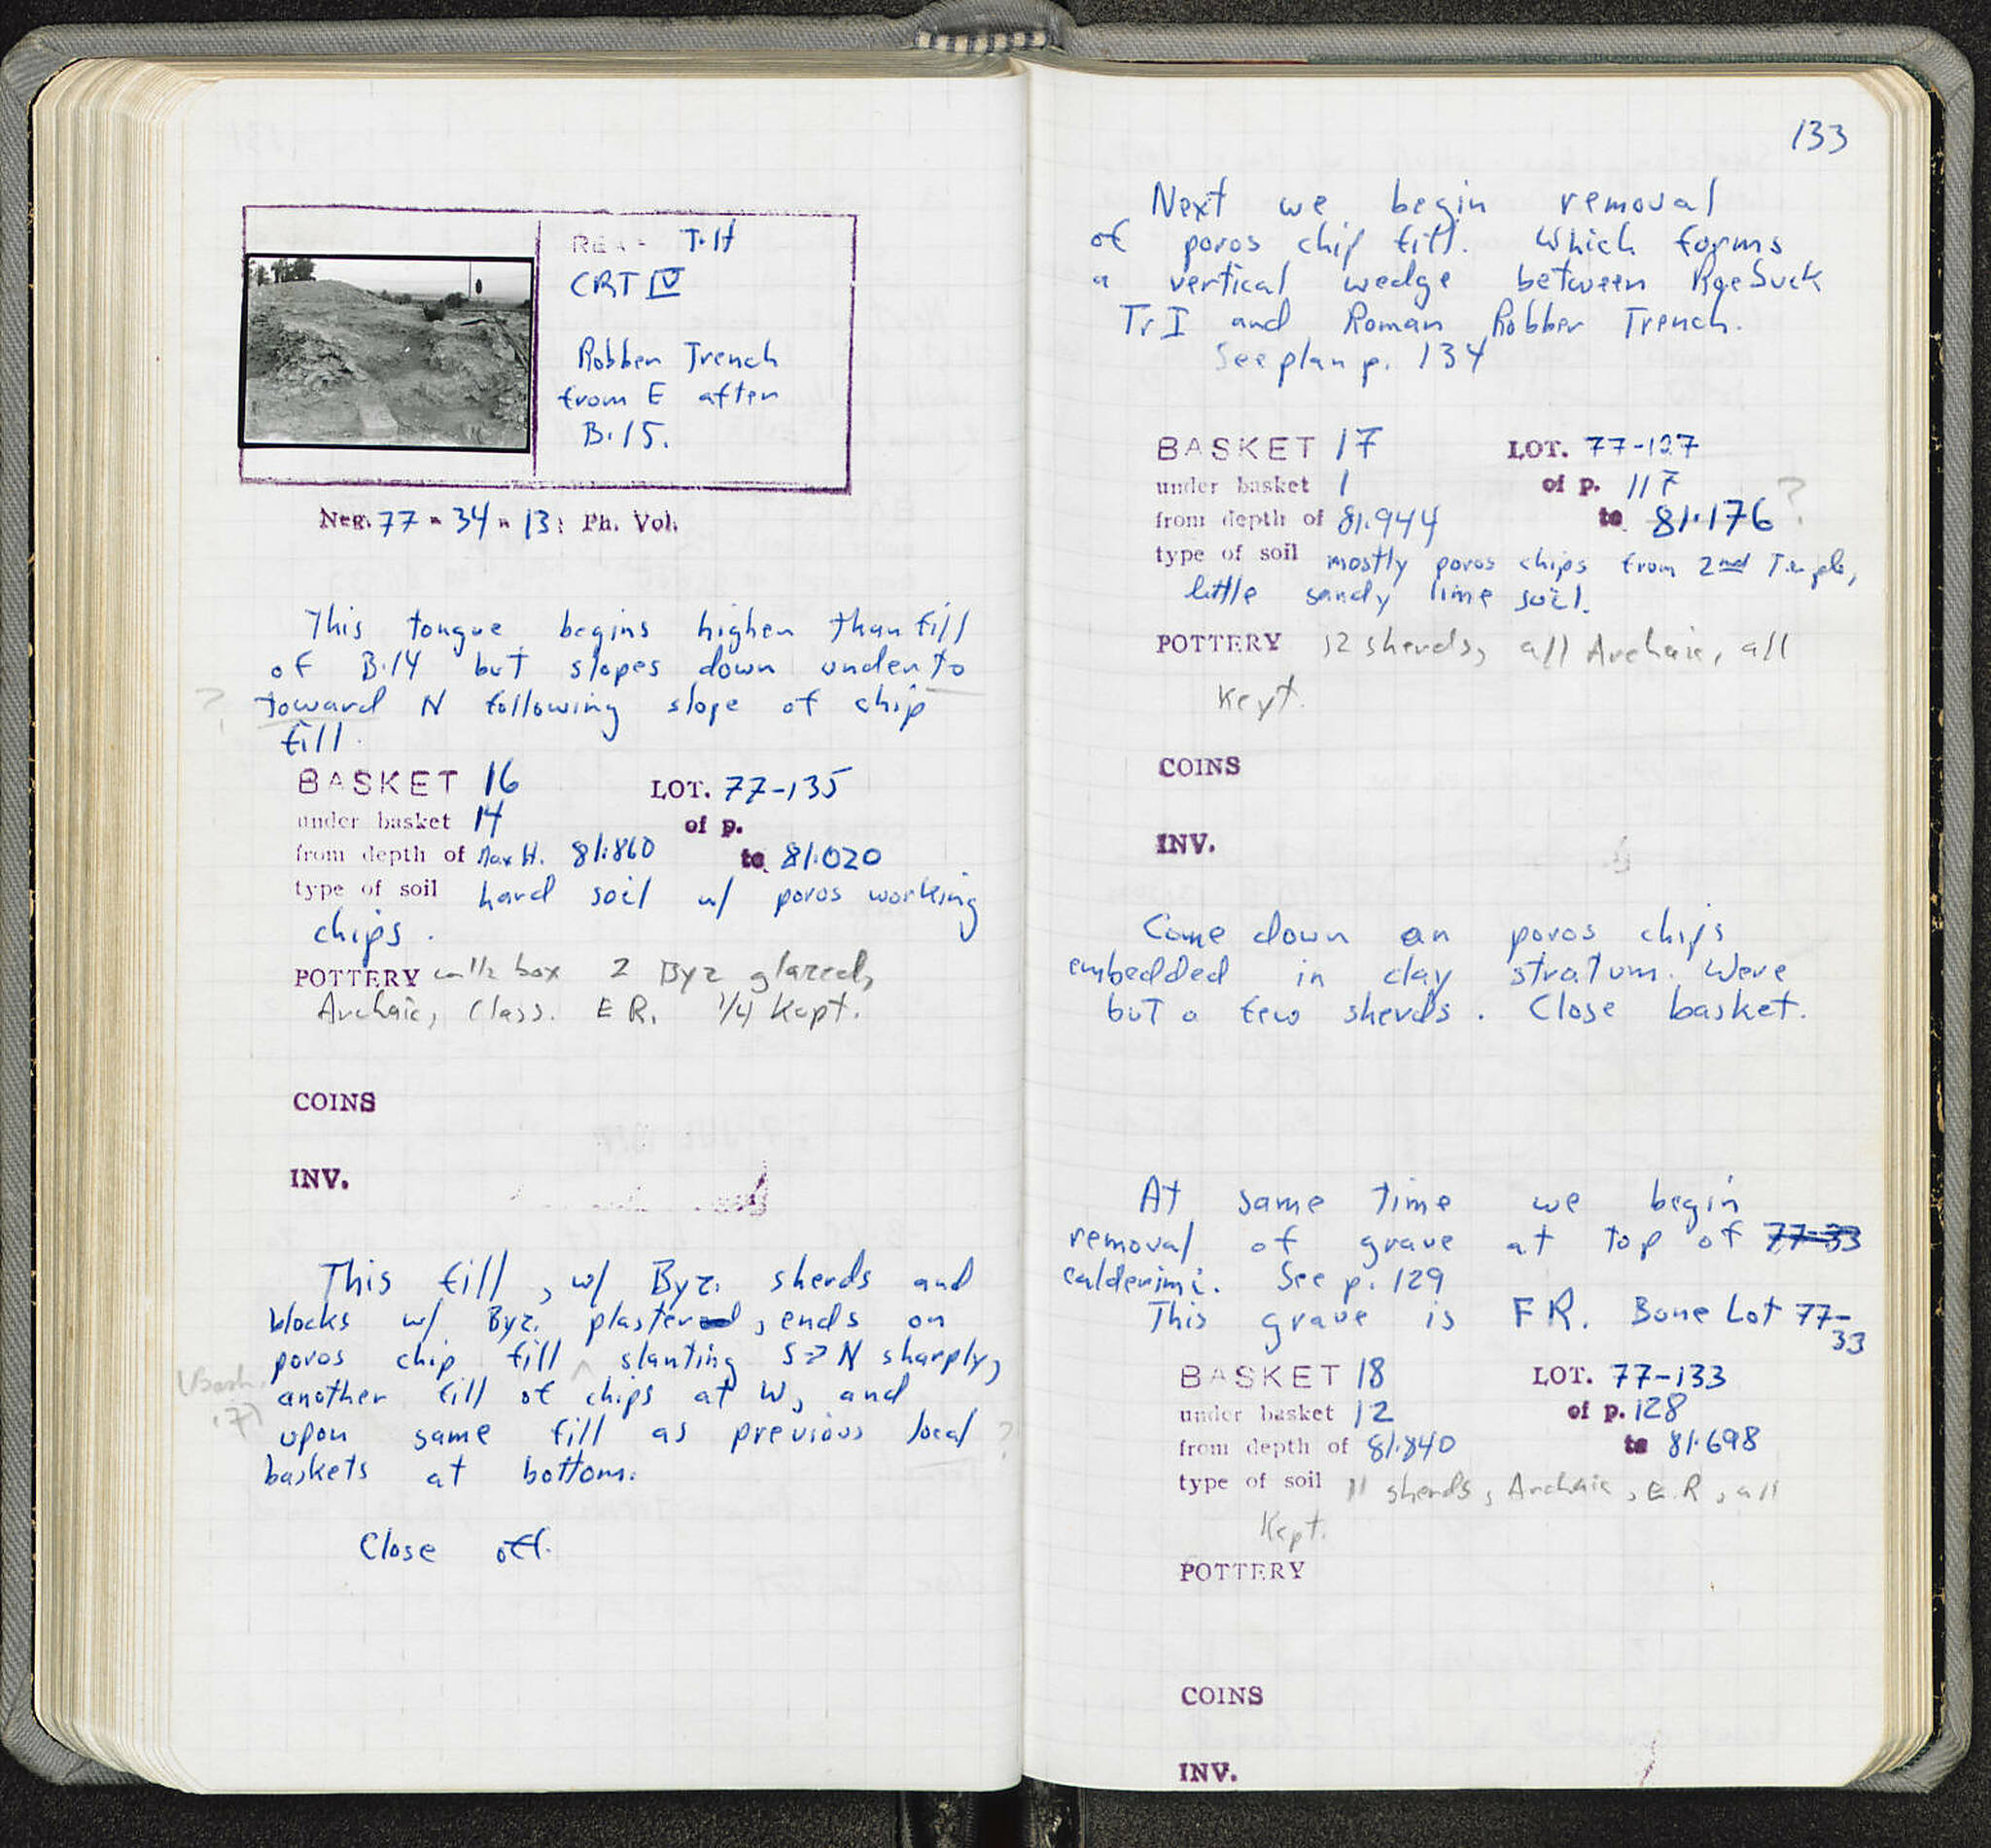 T. H
CRT IV
Robber Trench
from E after
B.15.
Neg. 77 - 34 - 13: Ph. Vol.
This tongue begins higher than fill
of B.14 but slopes down under to
? toward N following slope of chip
fill.
BASKET 16 LOT. 77-135
under basket 14 of p.
from depth of Max H. 81.860 to 81.020
type of soil hard soil w/ poros working
chips.
POTTERY 1/2 box 2 Byz glazed,
Archaic, Class. E R. 1/4 Kept.
COINS
INV.
This fill, w/ Byz. sherds and
blocks w/ Byz. plaster, ends on
poros chip fill ^ slanting S→N sharply,
(Bask. another fill of chips at W, and
17) upon same fill as previous local ?
baskets at bottom.
Close off.
133
Next we begin removal
of poros chip fill. Which forms
a vertical wedge between Roebuck
Tr I and Roman Robber Trench.
See plan p. 134
BASKET 17 LOT. 77-127
under basket 1 of p. 117
from depth of 81.944 to 81.176 ?
type of soil mostly poros chips from 2nd Temple,
little sandy lime soil.
POTTERY 12 sherds, all Archaic, all
Kept.
COINS
INV.
Come down on poros chips
embedded in clay stratum. Were
but a few sherds. Close basket.
At same time we begin
removal of grave at top of 77-33
calderimi. See p. 129
This grave is FR. Bone Lot 77-
33
BASKET 18 LOT. 77-133
under basket 12 of p. 128
from depth of 81.840 to 81.698
type of soil 11 sherds, Archaic, E.R, all
Kept.
POTTERY
COINS
INV.